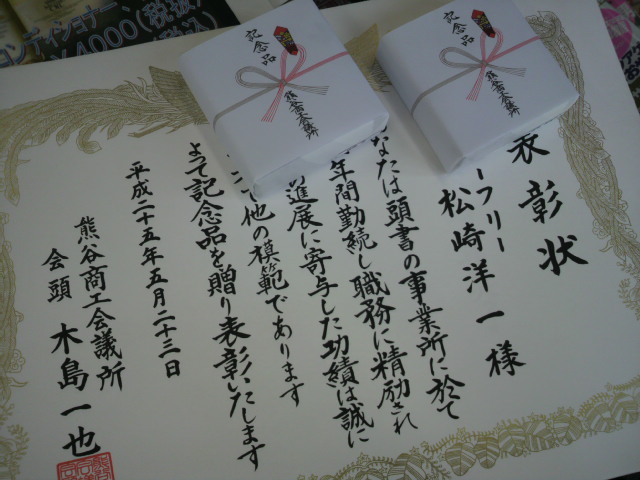 コンディショナー、
¥4000(税抜)
税込)
記念品
熊谷商工会議所
記念品
熊谷商工会議所
表彰状
ーフリー
松崎洋一様
なたは頭書の事業所に於て
年間勤続し職務に精励され
進展に寄与した功績は誠に
他の模範であります
よって記念品を贈り表彰いたします
平成二十五年五月二十三日
熊谷商工会議所
会頭 木島一也